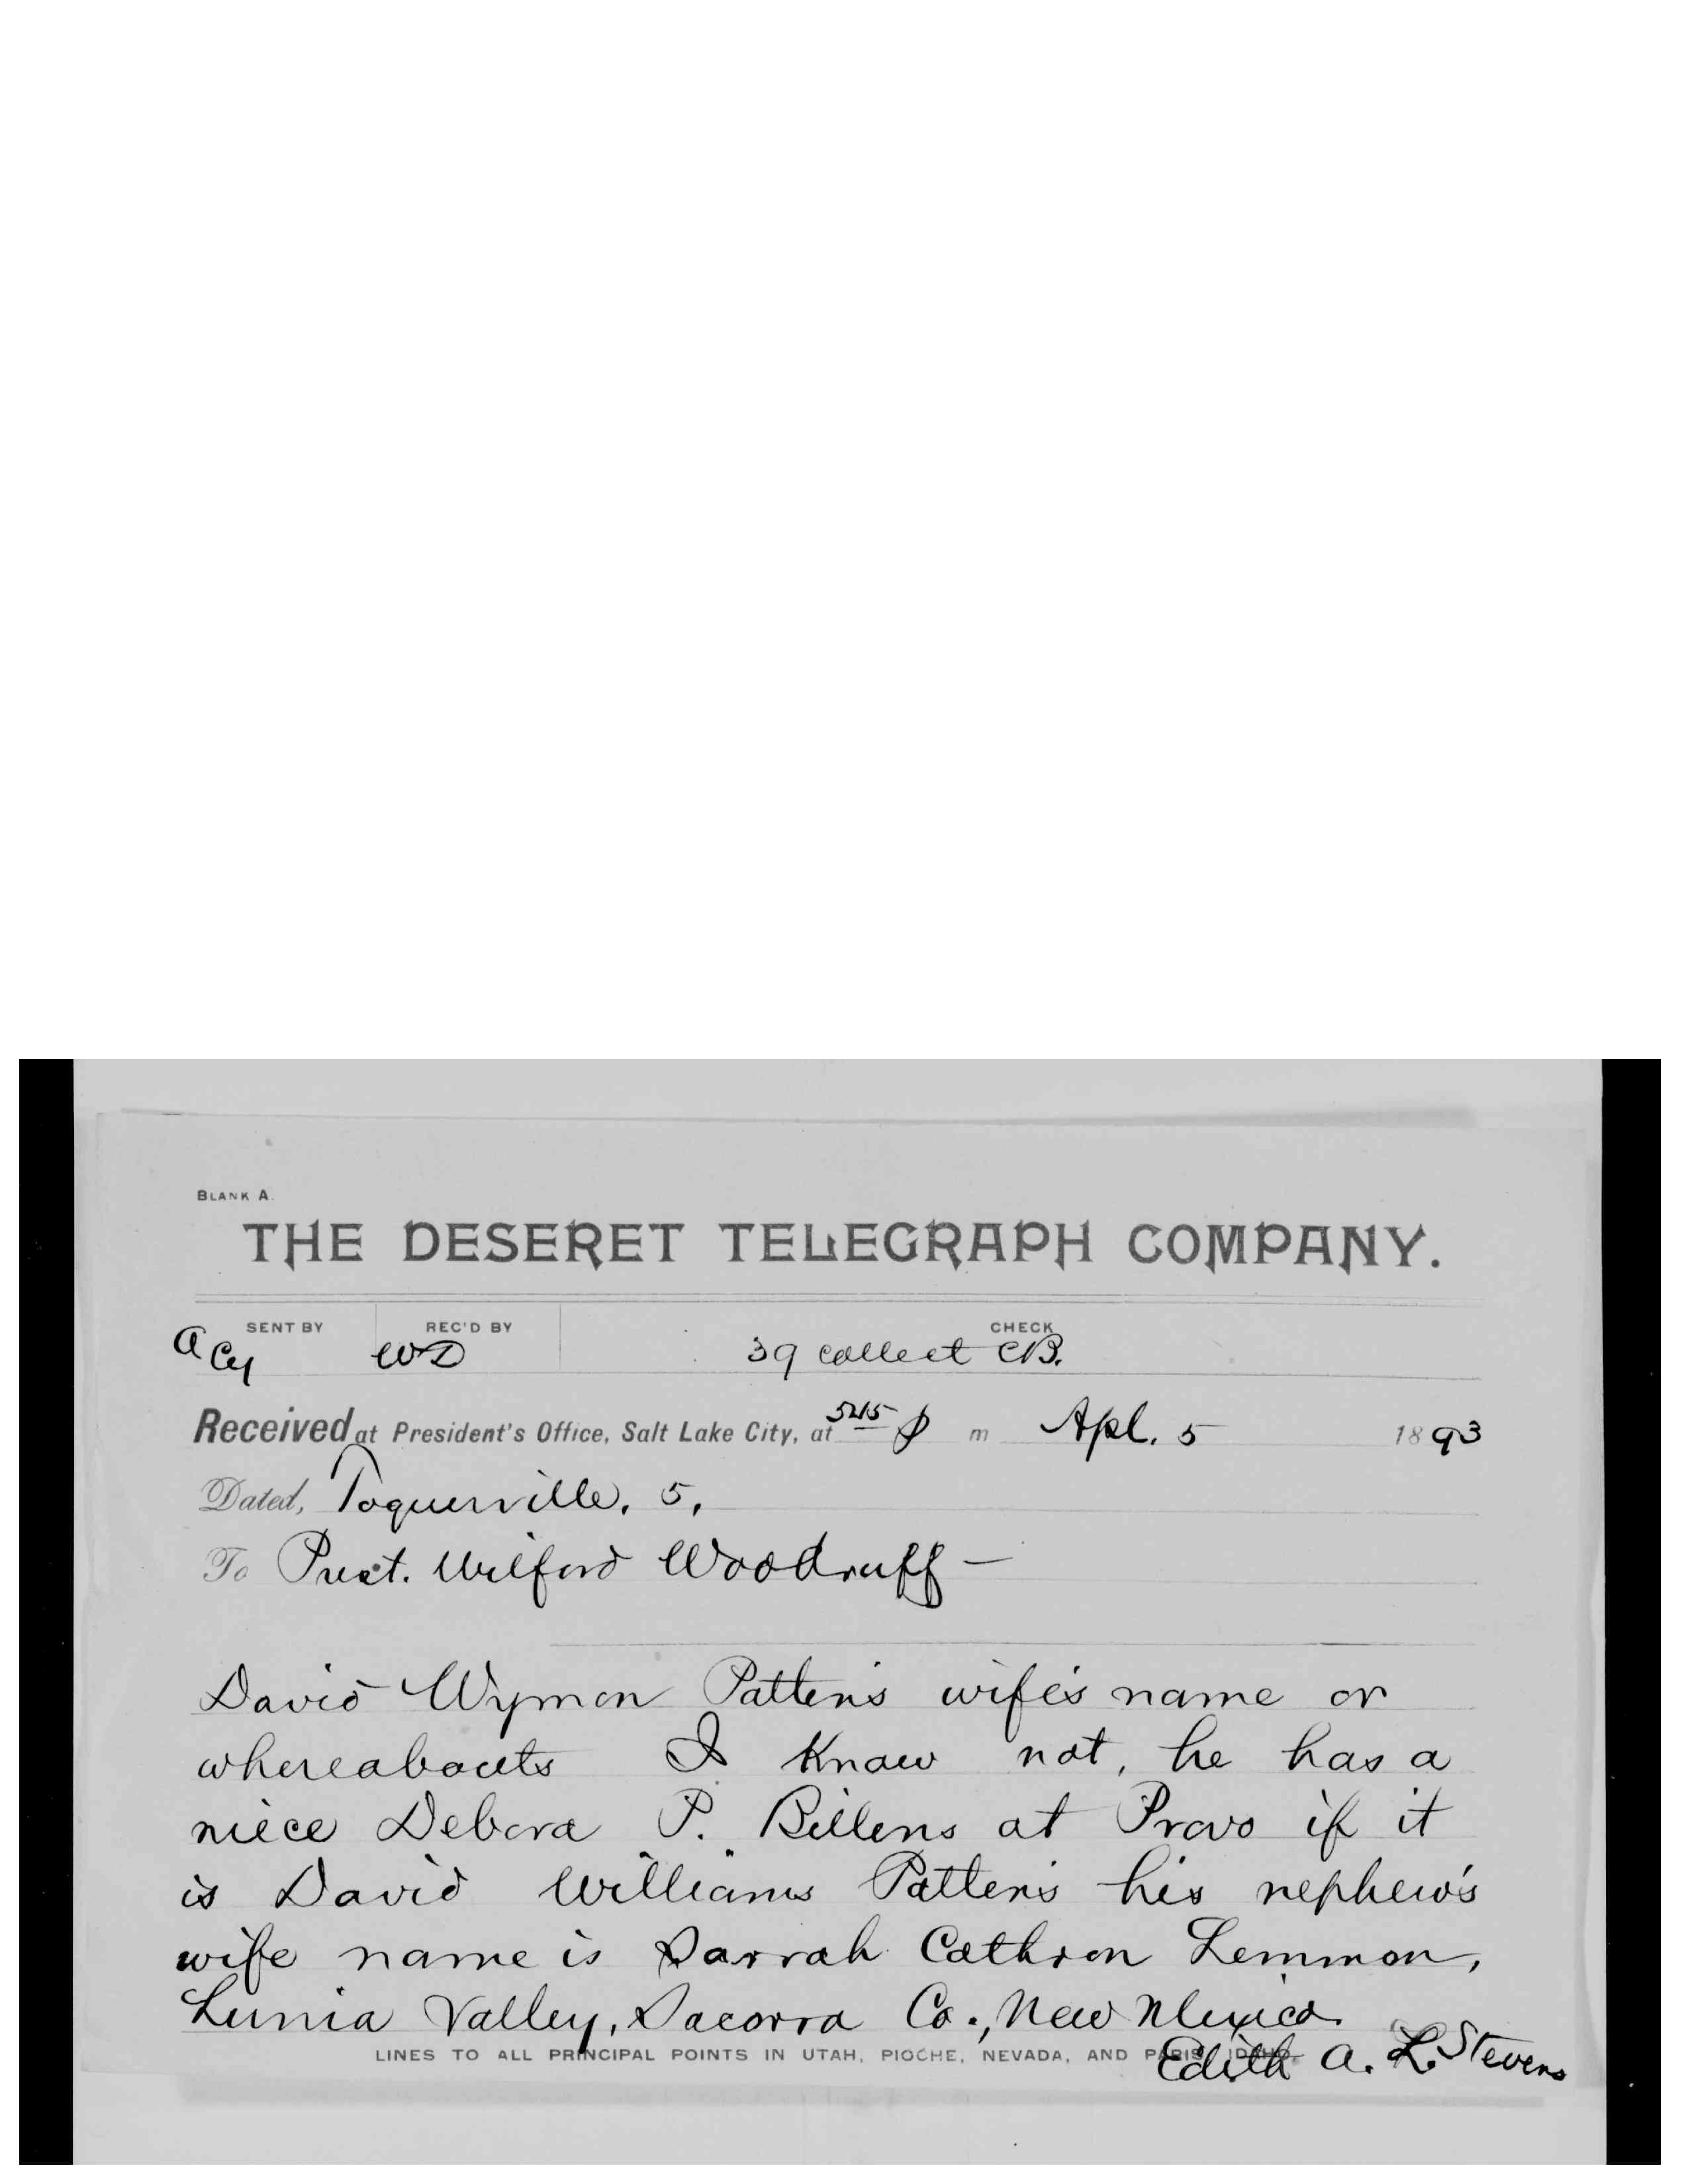 BLANK A.
THE DESERET TELEGRAPH COMPANY.
SENT BY REC'D BY CHECK
a Cy WD 39 collect CB.
Received at President's Office, Salt Lake City, at 545 p m Apl. 5 1893
Dated, Toquerville, 5,
To Prest. Wilford Woodruff —
David Wymon Patten's wife's name or
whereabouts I know not, he has a
niece Debora P. Billens at Provo if it
is David Williams Patten's his nephew's
wife name is Sarrah Cathron Lemmon,
Lunia Valley, Sacorra Co., New Mexico.
LINES TO ALL PRINCIPAL POINTS IN UTAH, PIOCHE, NEVADA, AND PARIS, IDAHO.
Edith A. L. Stevens